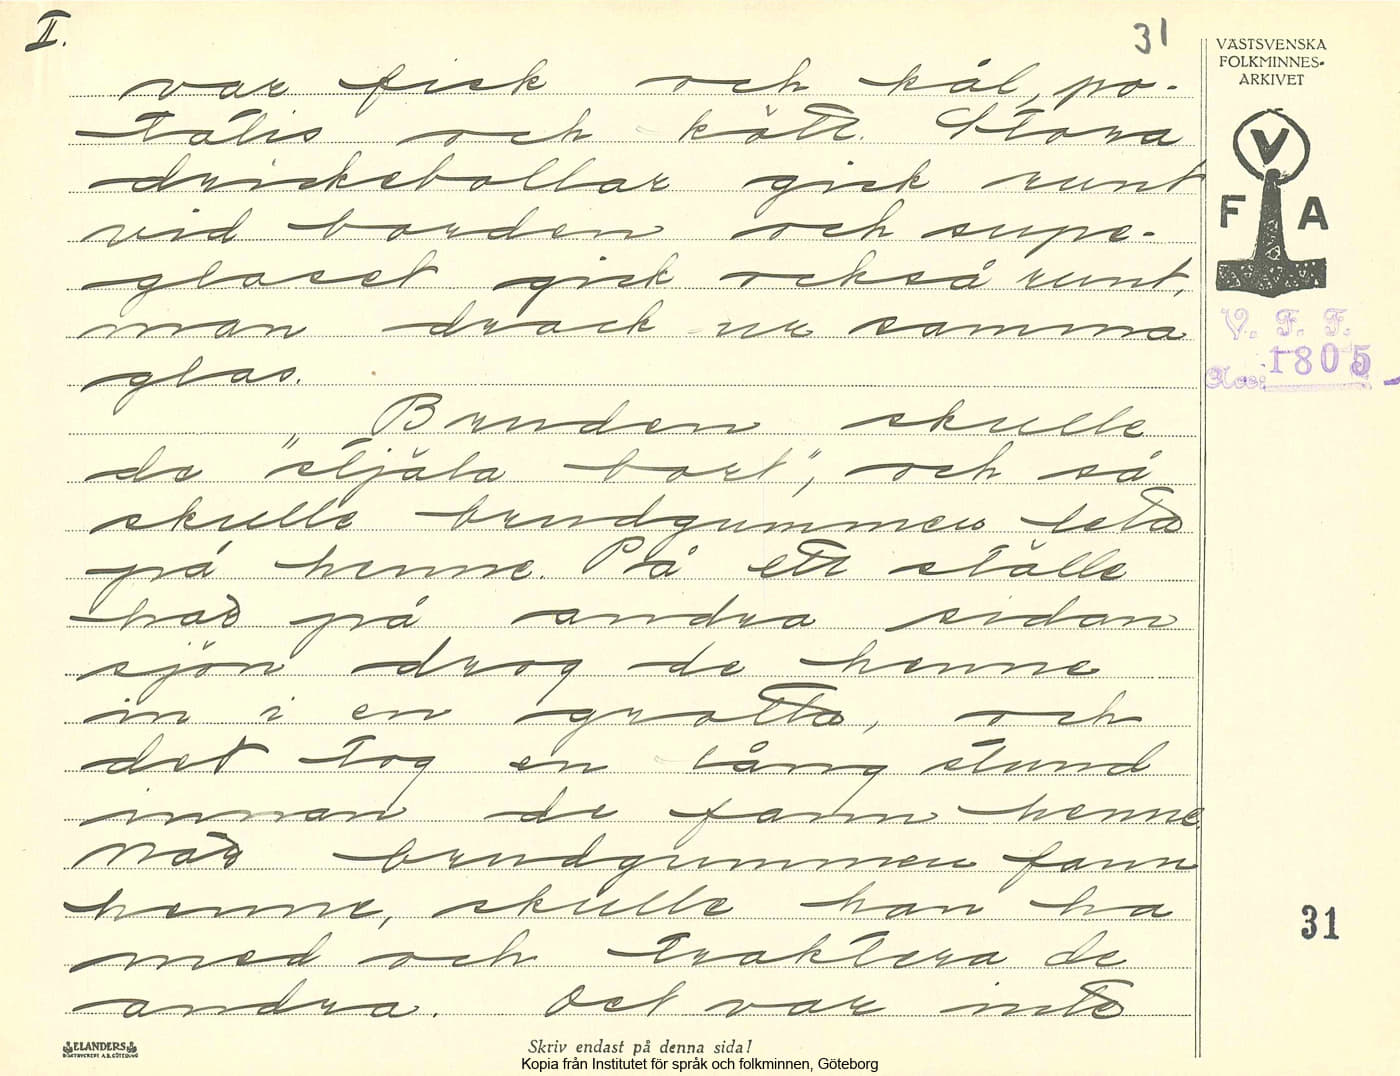 II.
31
VÄSTSVENSKA
FOLKMINNES-
ARKIVET
V
F A
V. F. F.
Acc: 1805
var fisk och kål, po-
tatis och kött. Stora
drickebollar gick runt
vid borden och supe-
glaset gick också runt,
man drack ur samma
glas.
Bruden skulle
de "stjäla bort", och så
skulle brudgummen leta
på henne. På ett ställe
här på andra sidan
sjön drog de henne
in i en grotta, och
det tog en lång stund
innan de fann henne.
När brudgummen fann
henne, skulle han ha
med och traktera de
andra. Det var inte
31
ELANDERS
BOKTRYCKERI A.B. GÖTEBORG
Skriv endast på denna sida!
Kopia från Institutet för språk och folkminnen, Göteborg